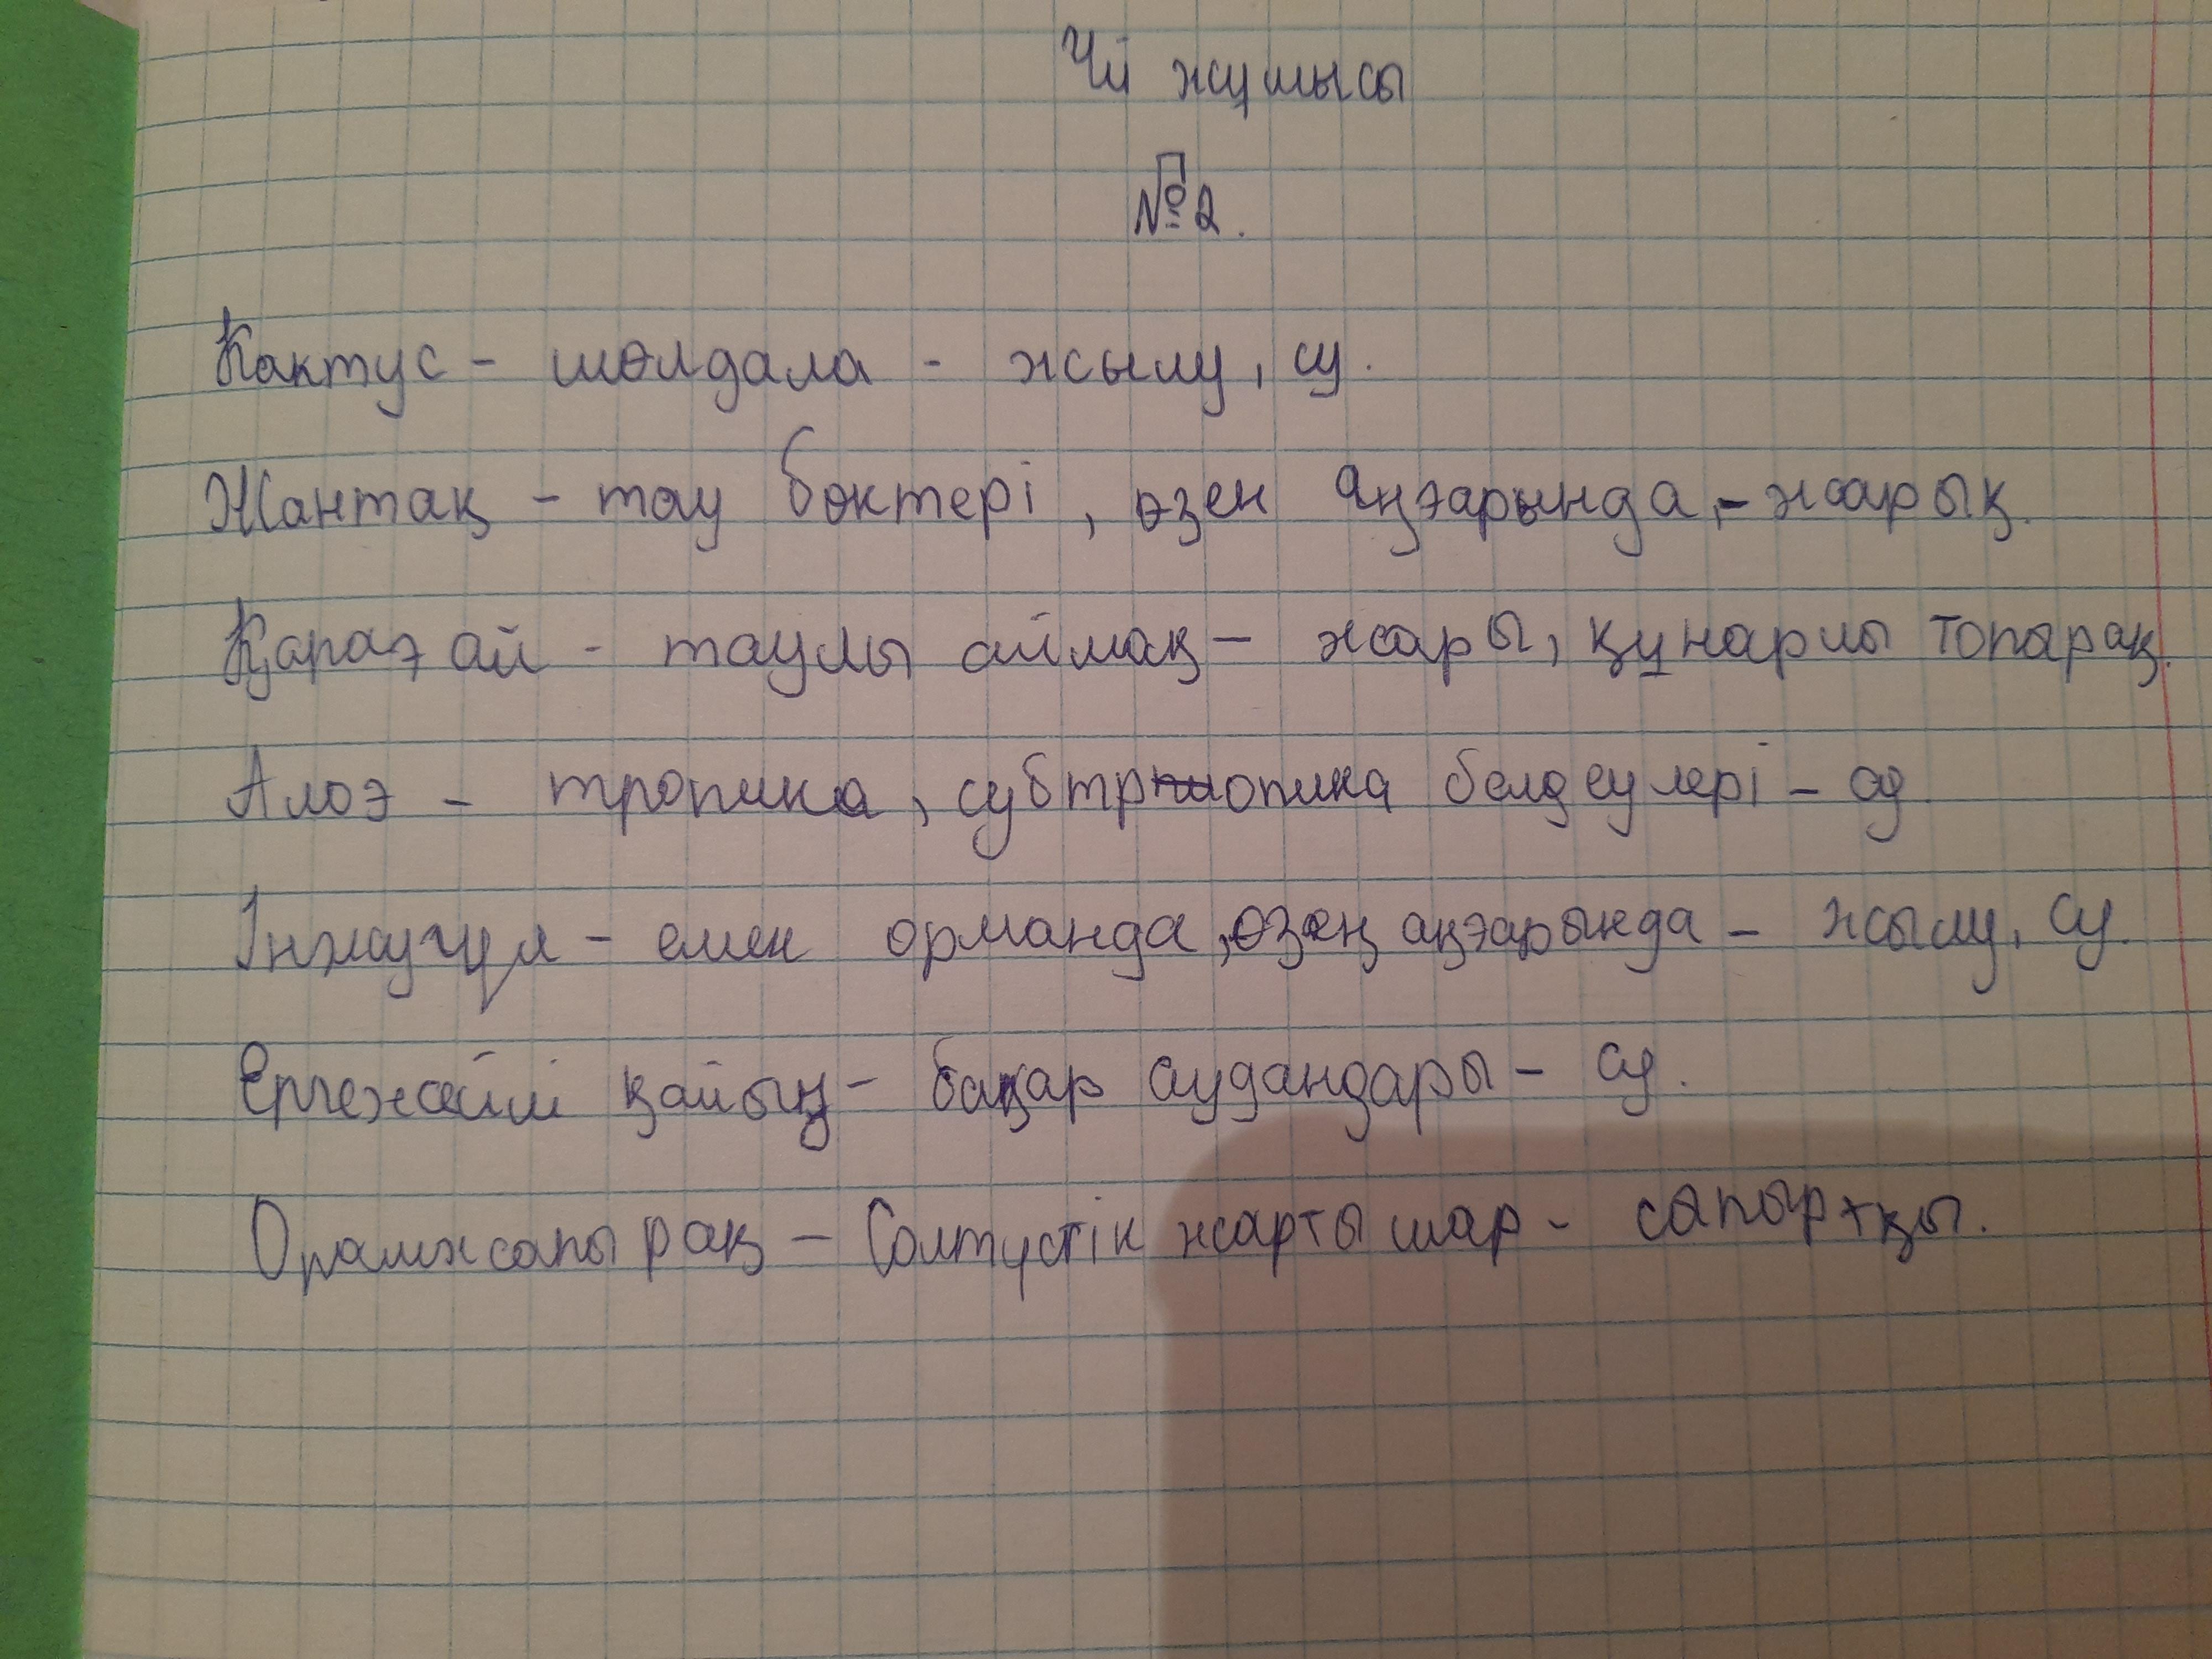 Үй жұмысы
№2.
Кактус - шөлдала - жылу, су.
Жантақ - тау бөктері, өзен аңғарында, - жарық.
Қарағай - таулы аймақ - жары, құнарлы топырақ.
Алоэ - тропика, субтропика белдеулері - су.
Інжугүл - емен орманда, өзең аңғарында - жылу, су.
Ергежейлі қайың - бақар аудандары - су.
Орамжапырақ - Солтүстік жарты шар -